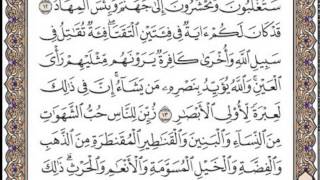 سَتُغْلَبُونَ وَتُحْشَرُونَ إِلَىٰ جَهَنَّمَ وَبِئْسَ الْمِهَادُ ١٢
قَدْ كَانَ لَكُمْ ءَايَةٌ فِي فِئَتَيْنِ الْتَقَتَا فِئَةٌ تُقَاتِلُ فِي
سَبِيلِ اللَّهِ وَأُخْرَىٰ كَافِرَةٌ يَرَوْنَهُم مِّثْلَيْهِمْ رَأْيَ
الْعَيْنِ وَاللَّهُ يُؤَيِّدُ بِنَصْرِهِ مَن يَشَاءُ إِنَّ فِي ذَٰلِكَ
لَعِبْرَةً لِّأُولِي الْأَبْصَارِ ١٣ زُيِّنَ لِلنَّاسِ حُبُّ الشَّهَوَاتِ
مِنَ النِّسَاءِ وَالْبَنِينَ وَالْقَنَاطِيرِ الْمُقَنطَرَةِ مِنَ الذَّهَبِ
وَالْفِضَّةِ وَالْخَيْلِ الْمُسَوَّمَةِ وَالْأَنْعَامِ وَالْحَرْثِ ذَٰلِكَ